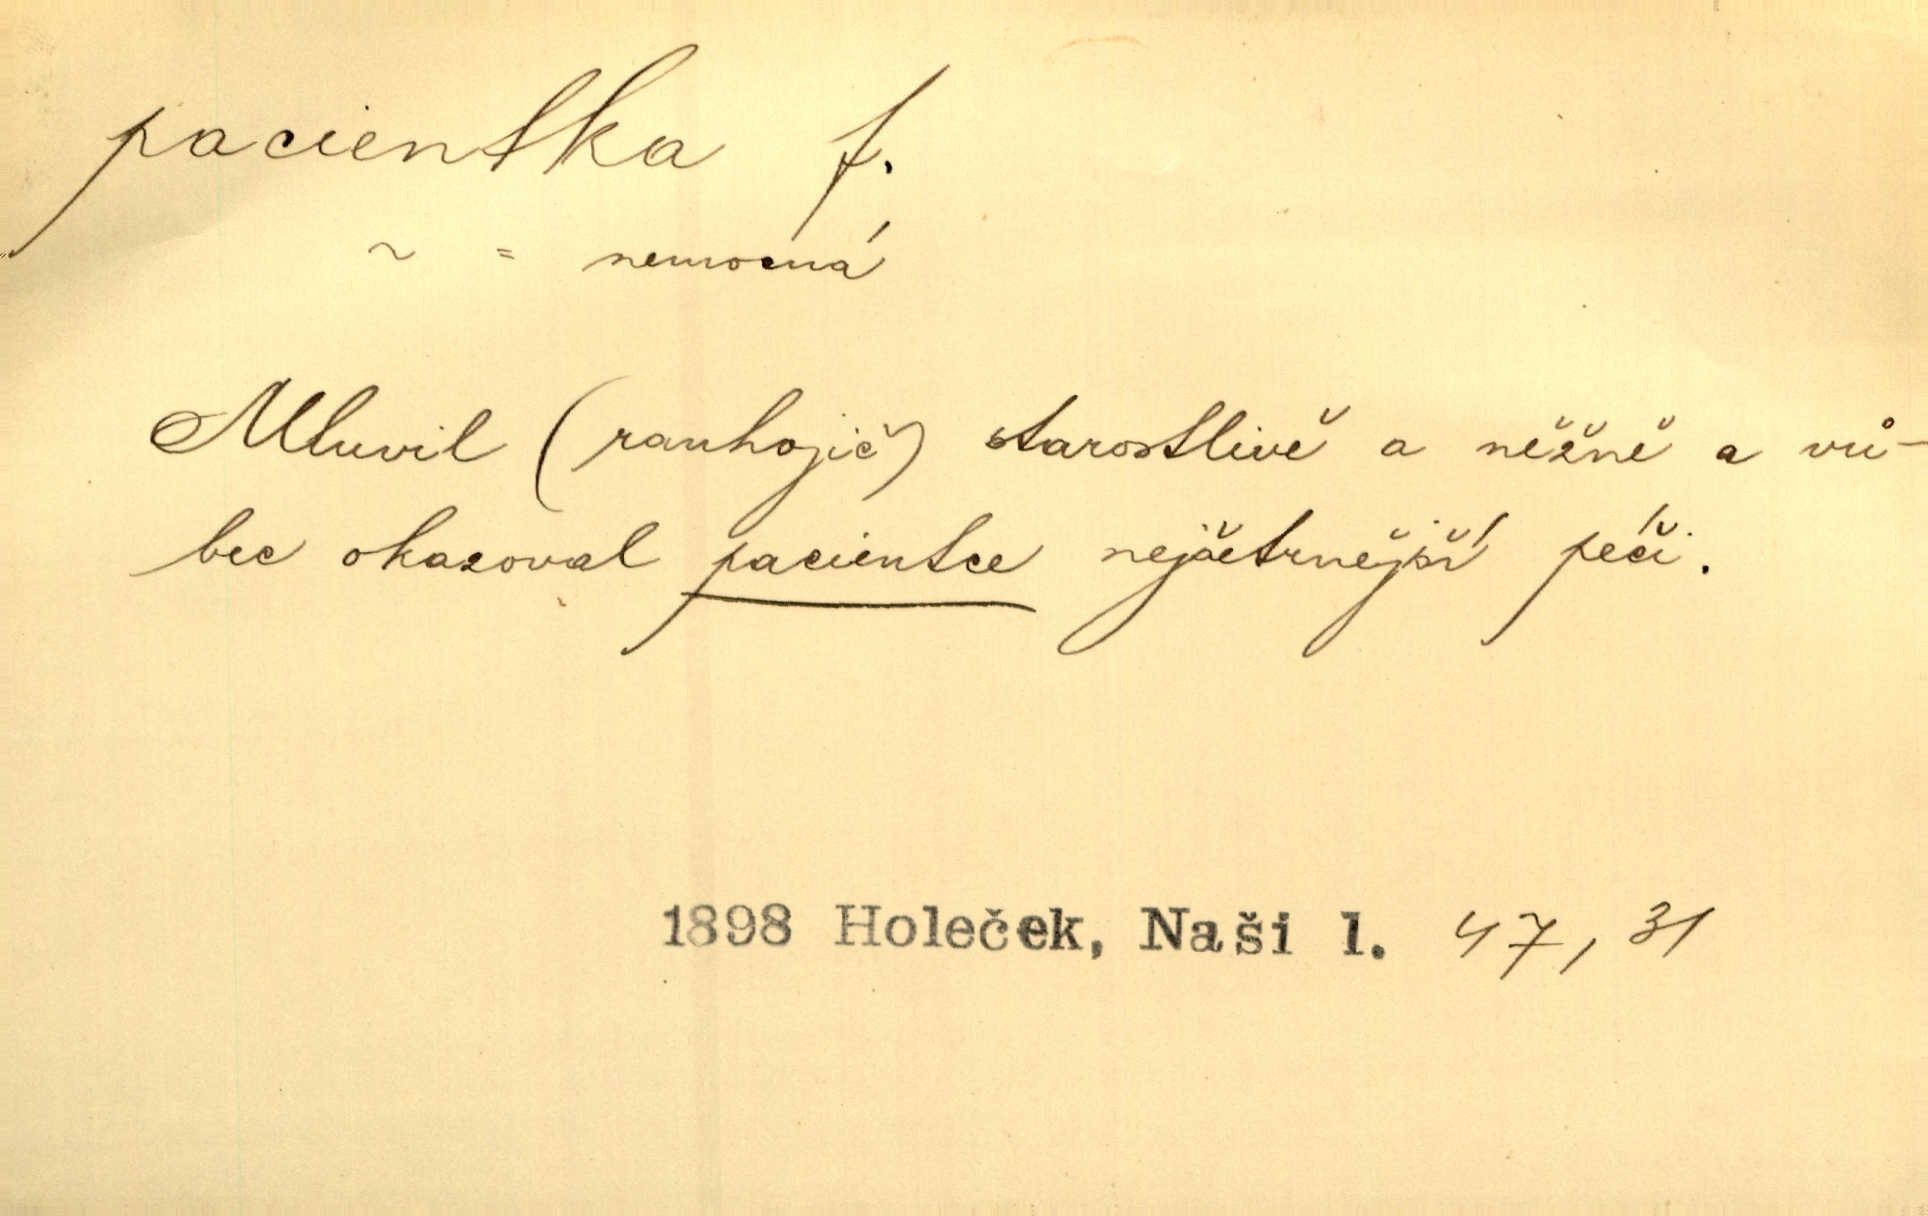 pacientka f.
~ = nemocná
Mluvil (ranhojič) starostlivě a něžně a vů-
bec okazoval pacientce nejšetrnější péči.
1898 Holeček, Naši l. 47, 31